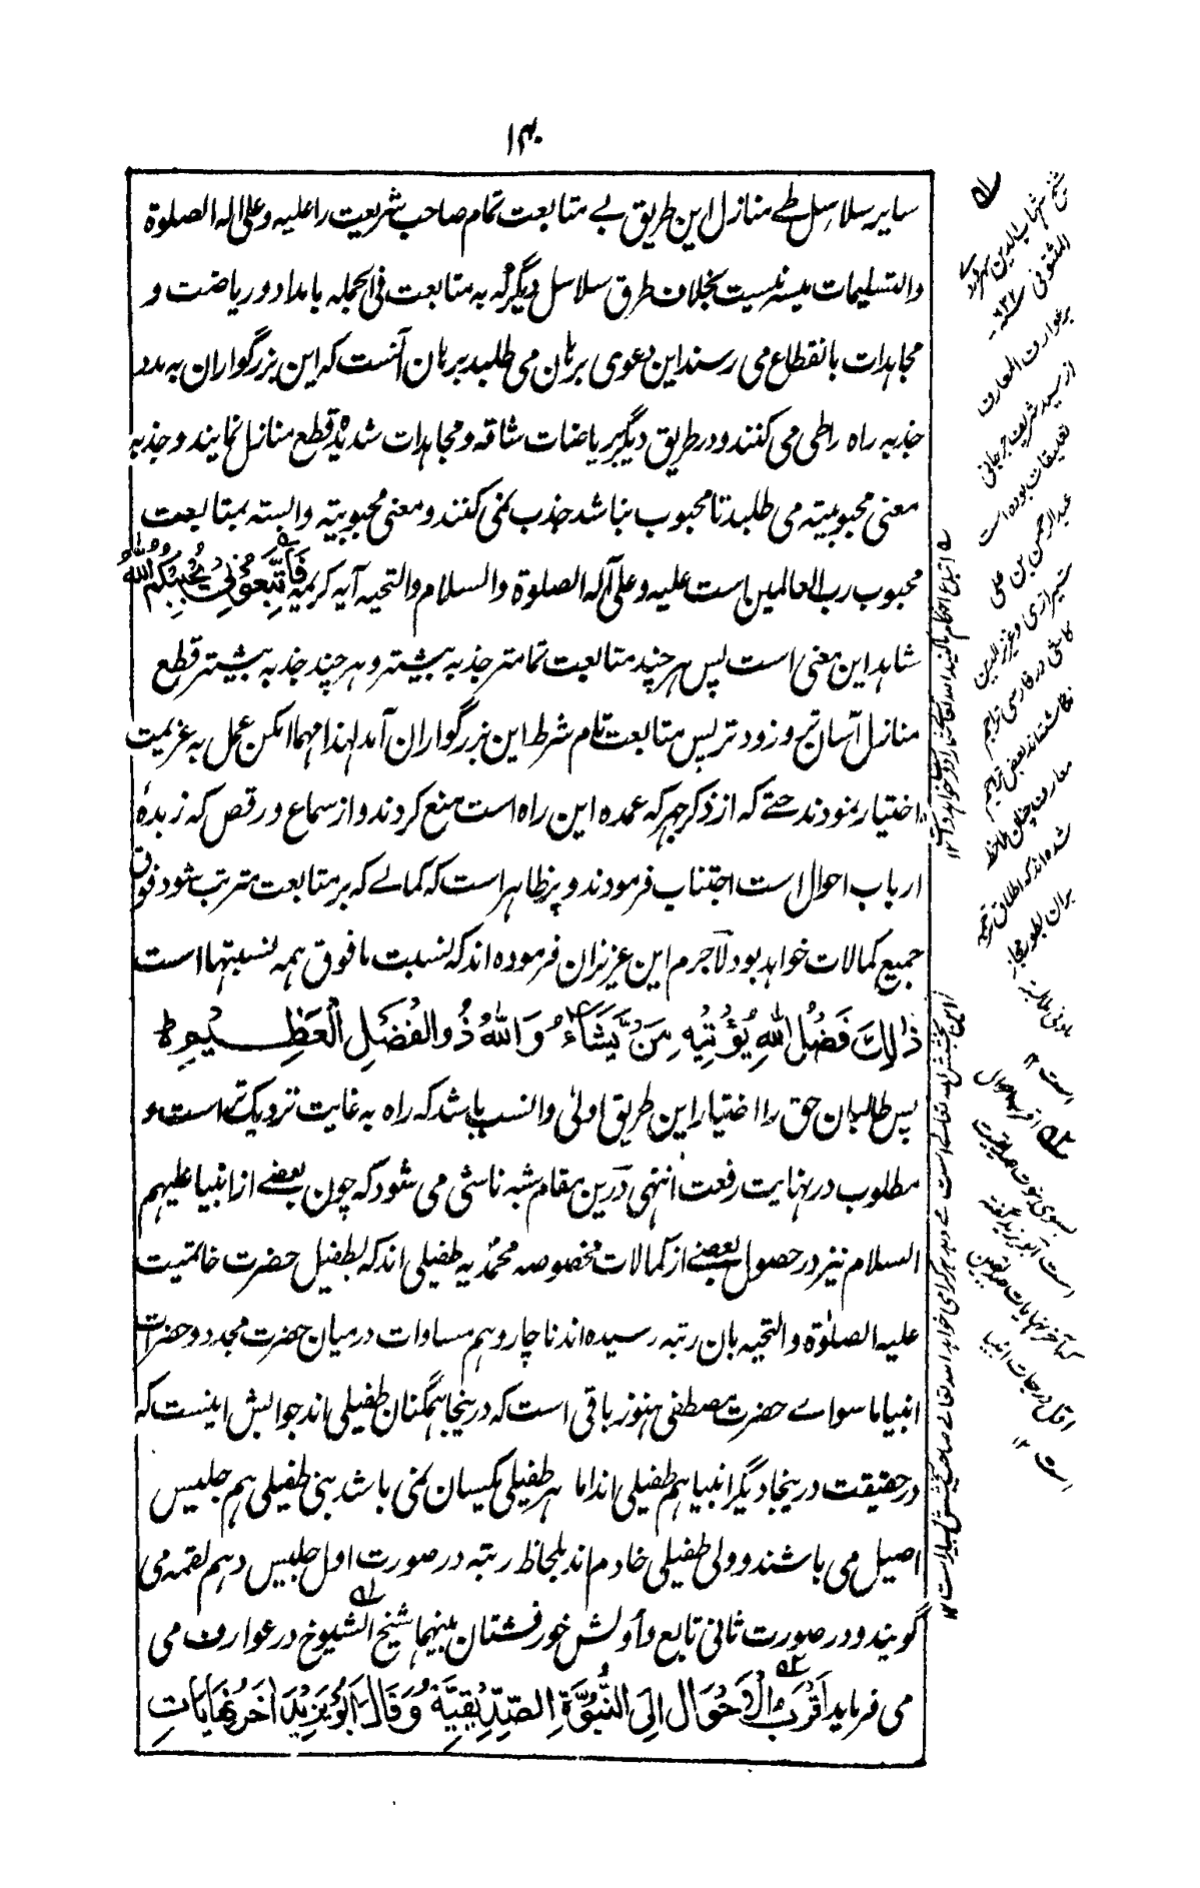 ۱۴۰
سایر سلاسل طے منازل این طریق بے متابعت تمام صاحب شریعت را علیه و علی اله الصلوة
والتسلیمات میسر نیست بخلاف طرق سلاسل دیگر که به متابعت فی الجمله بامداد و ریاضت و
مجاهدات بانقطاع می رسند این دعوی برهان می طلبد برهان آنست که این بزرگواران به مدد
جذبه راه را طی می کنند و در طریق دیگر بریاضات شاقه و مجاهدات شدیده قطع منازل نمایند و جذبه
معنی محبوبیته می طلبد تا محبوب نباشد جذب نمی کنند و معنی محبوبیته وابسته بمتابعت
محبوب رب العالمین است علیه و علی آله الصلوة والسلام والتحیه آیه کریمه فَاتَّبِعُونِی یُحْبِبْکُمُ اللّٰهُ
شاهد این معنی است پس هر چند متابعت تمامتر جذبه بیشتر و هر چند جذبه بیشتر قطع
منازل آسان تر و زود تر پس متابعت تام شرط این بزرگواران آمد لهذا مهما امکن عمل به عزیمت
اختیار نمودند حتے که از ذکر جهر که عمده این راه است منع کردند و از سماع و رقص که زبدهٔ
ارباب احوال است اجتناب فرمودند و پر ظاهر است که کمالے که بر متابعت مترتب شود فوق
جمیع کمالات خواهد بود لا جرم این عزیزان فرموده اند که نسبت ما فوق همه نسبتها است
ذٰلِكَ فَضْلُ اللّٰهِ یُؤْتِیْهِ مَنْ یَّشَآءُ وَاللّٰهُ ذُوالْفَضْلِ الْعَظِیْمِ ط
پس طالبان حق را اختیار این طریق اولی وانسب باشد که راه به غایت نزدیک تر است و
مطلوب در نهایت رفعت انتهی درین مقام شبه ناشی می شود که چون بعضے از انبیا علیهم
السلام نیز در حصول بعضے از کمالات مخصوصه محمدیه طفیلی اند که بطفیل حضرت خاتمیت
علیه الصلوٰة والتحیه بان رتبه رسیده اند ناچار وهم مساوات درمیان حضرت مجدد و حضرات
انبیا ماسواے حضرت مصطفی هنوز باقی است که درینجا همگنان طفیلی اند جوابش اینست که
در حقیقت درینجا دیگر انبیا هم طفیلی اند اما هر طفیلی یکسان نمی باشد بنی طفیلی هم جلیس
اصیل می باشند و ولی طفیلی خادم اند بلحاظ رتبه در صورت اول جلیس و هم لقمه می
گویند و در صورت ثانی تابع و أولش خور فشتان بینهما شیخ الشیوخ در عوارف می
می فرماید اَقْرَبُ الْاَحْوَالِ اِلَی النُّبُوَّةِ الصِّدِّیْقِیَّةُ وَقَالَ اَبُوْ یَزِیْدَ اٰخِرُ نِهَایَاتِ
شیخ شهاب الدین سهروردی
المتوفی ۶۳۲
بر عوارف المعارف
از سید شریف جرجانی
تعلیقات بوده است
عبد الرحمن بن علی
شیرازی و عز الدین
کاشی در فارسی تراجم
نگاشته اند بعض تراجم
شده اند که اطلاق ترجمه
بران بطور مجاز
است ۱۲
اقرب احوال
بسوی نبوت صدیقیت
است ابو یزید گفته
که آخر نهایات صدیقین
اول درجات انبیا
است ۱۲